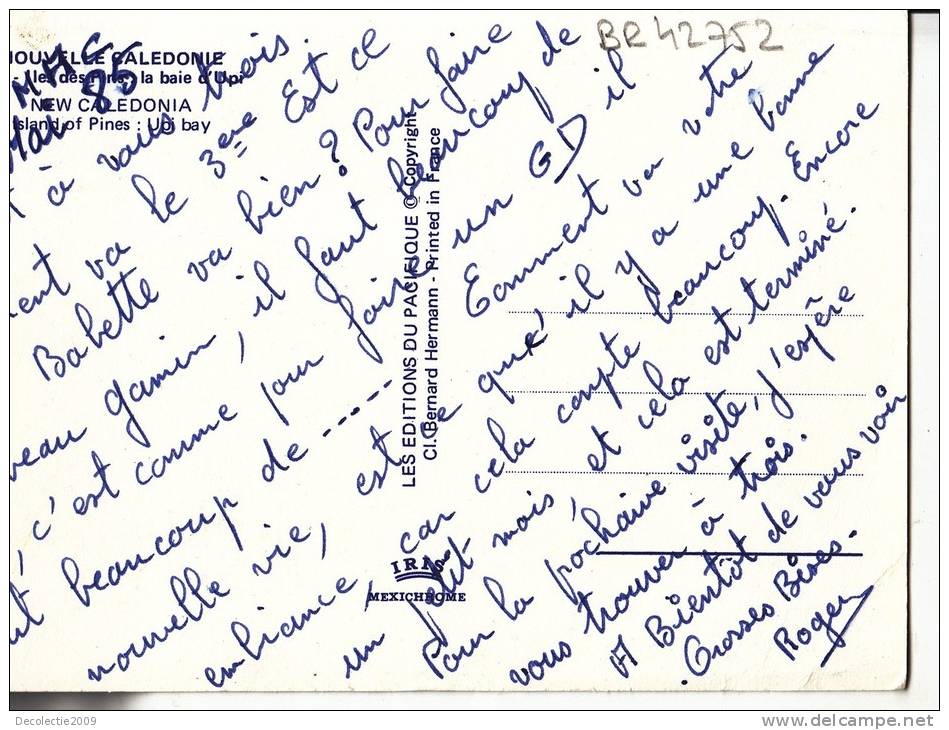 BR 42752
NOUVELLE CALEDONIE
la baie d'Upi
NEW CALEDONIA
Island of Pines : Upi bay
85
à vous trois.
va le 3ère Est ce
Babette va bien? Pour faire
veau gamin, il faut beaucoup de
, c'est comme pour faire un GD il
ut beaucoup de ----- Comment va votre
nouvelle vie, est ce qu'il y a une bonne
embiance, car cela compte beaucoup. Encore
un petit mois, et cela est terminé.
Pour la prochaine visite, j'espère
vous trouver à trois.
A Bientôt de vous voir
Grosses Bises.
Roger
LES EDITIONS DU PACIFIQUE © Copyright
Cl. Bernard Hermann - Printed in France
IRIS
MEXICHROME
Decolectie2009
www.delcampe.net